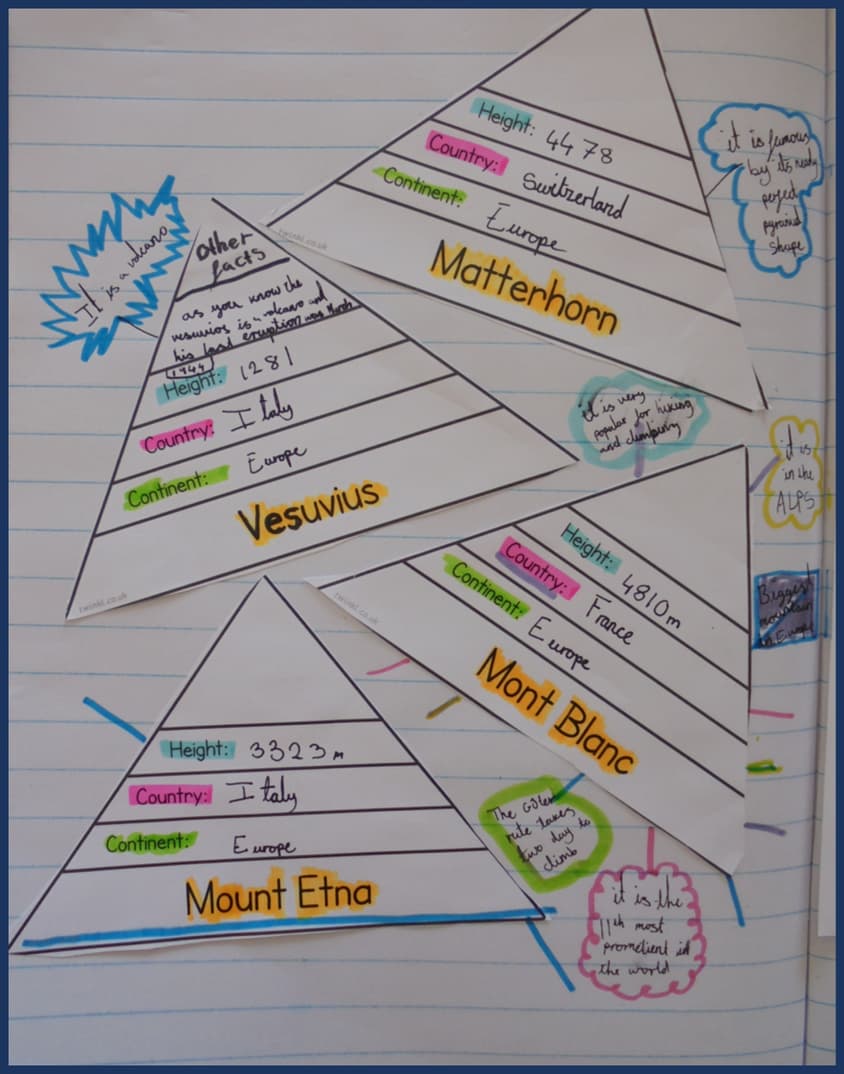 Height: 4478
Country: Switzerland
Continent: Europe
Matterhorn
twinkl.co.uk
it is famous
by its nearly
perfect
pyramid
shape
It is a volcano
Other
facts
as you know the
vesuvios is a volcano and
his last eruption was March
1944
Height: 1281
Country: Italy
Continent: Europe
Vesuvius
twinkl.co.uk
it is very
popular for hiking
and climbing
it is
in the
ALPS
Height: 4810m
Country: France
Continent: Europe
Mont Blanc
twinkl.co.uk
Biggest
mountain
in Europe
Height: 3323m
Country: Italy
Continent: Europe
Mount Etna
The
rute takes
two day to
climb
it is the
11th most
prometient in
the world